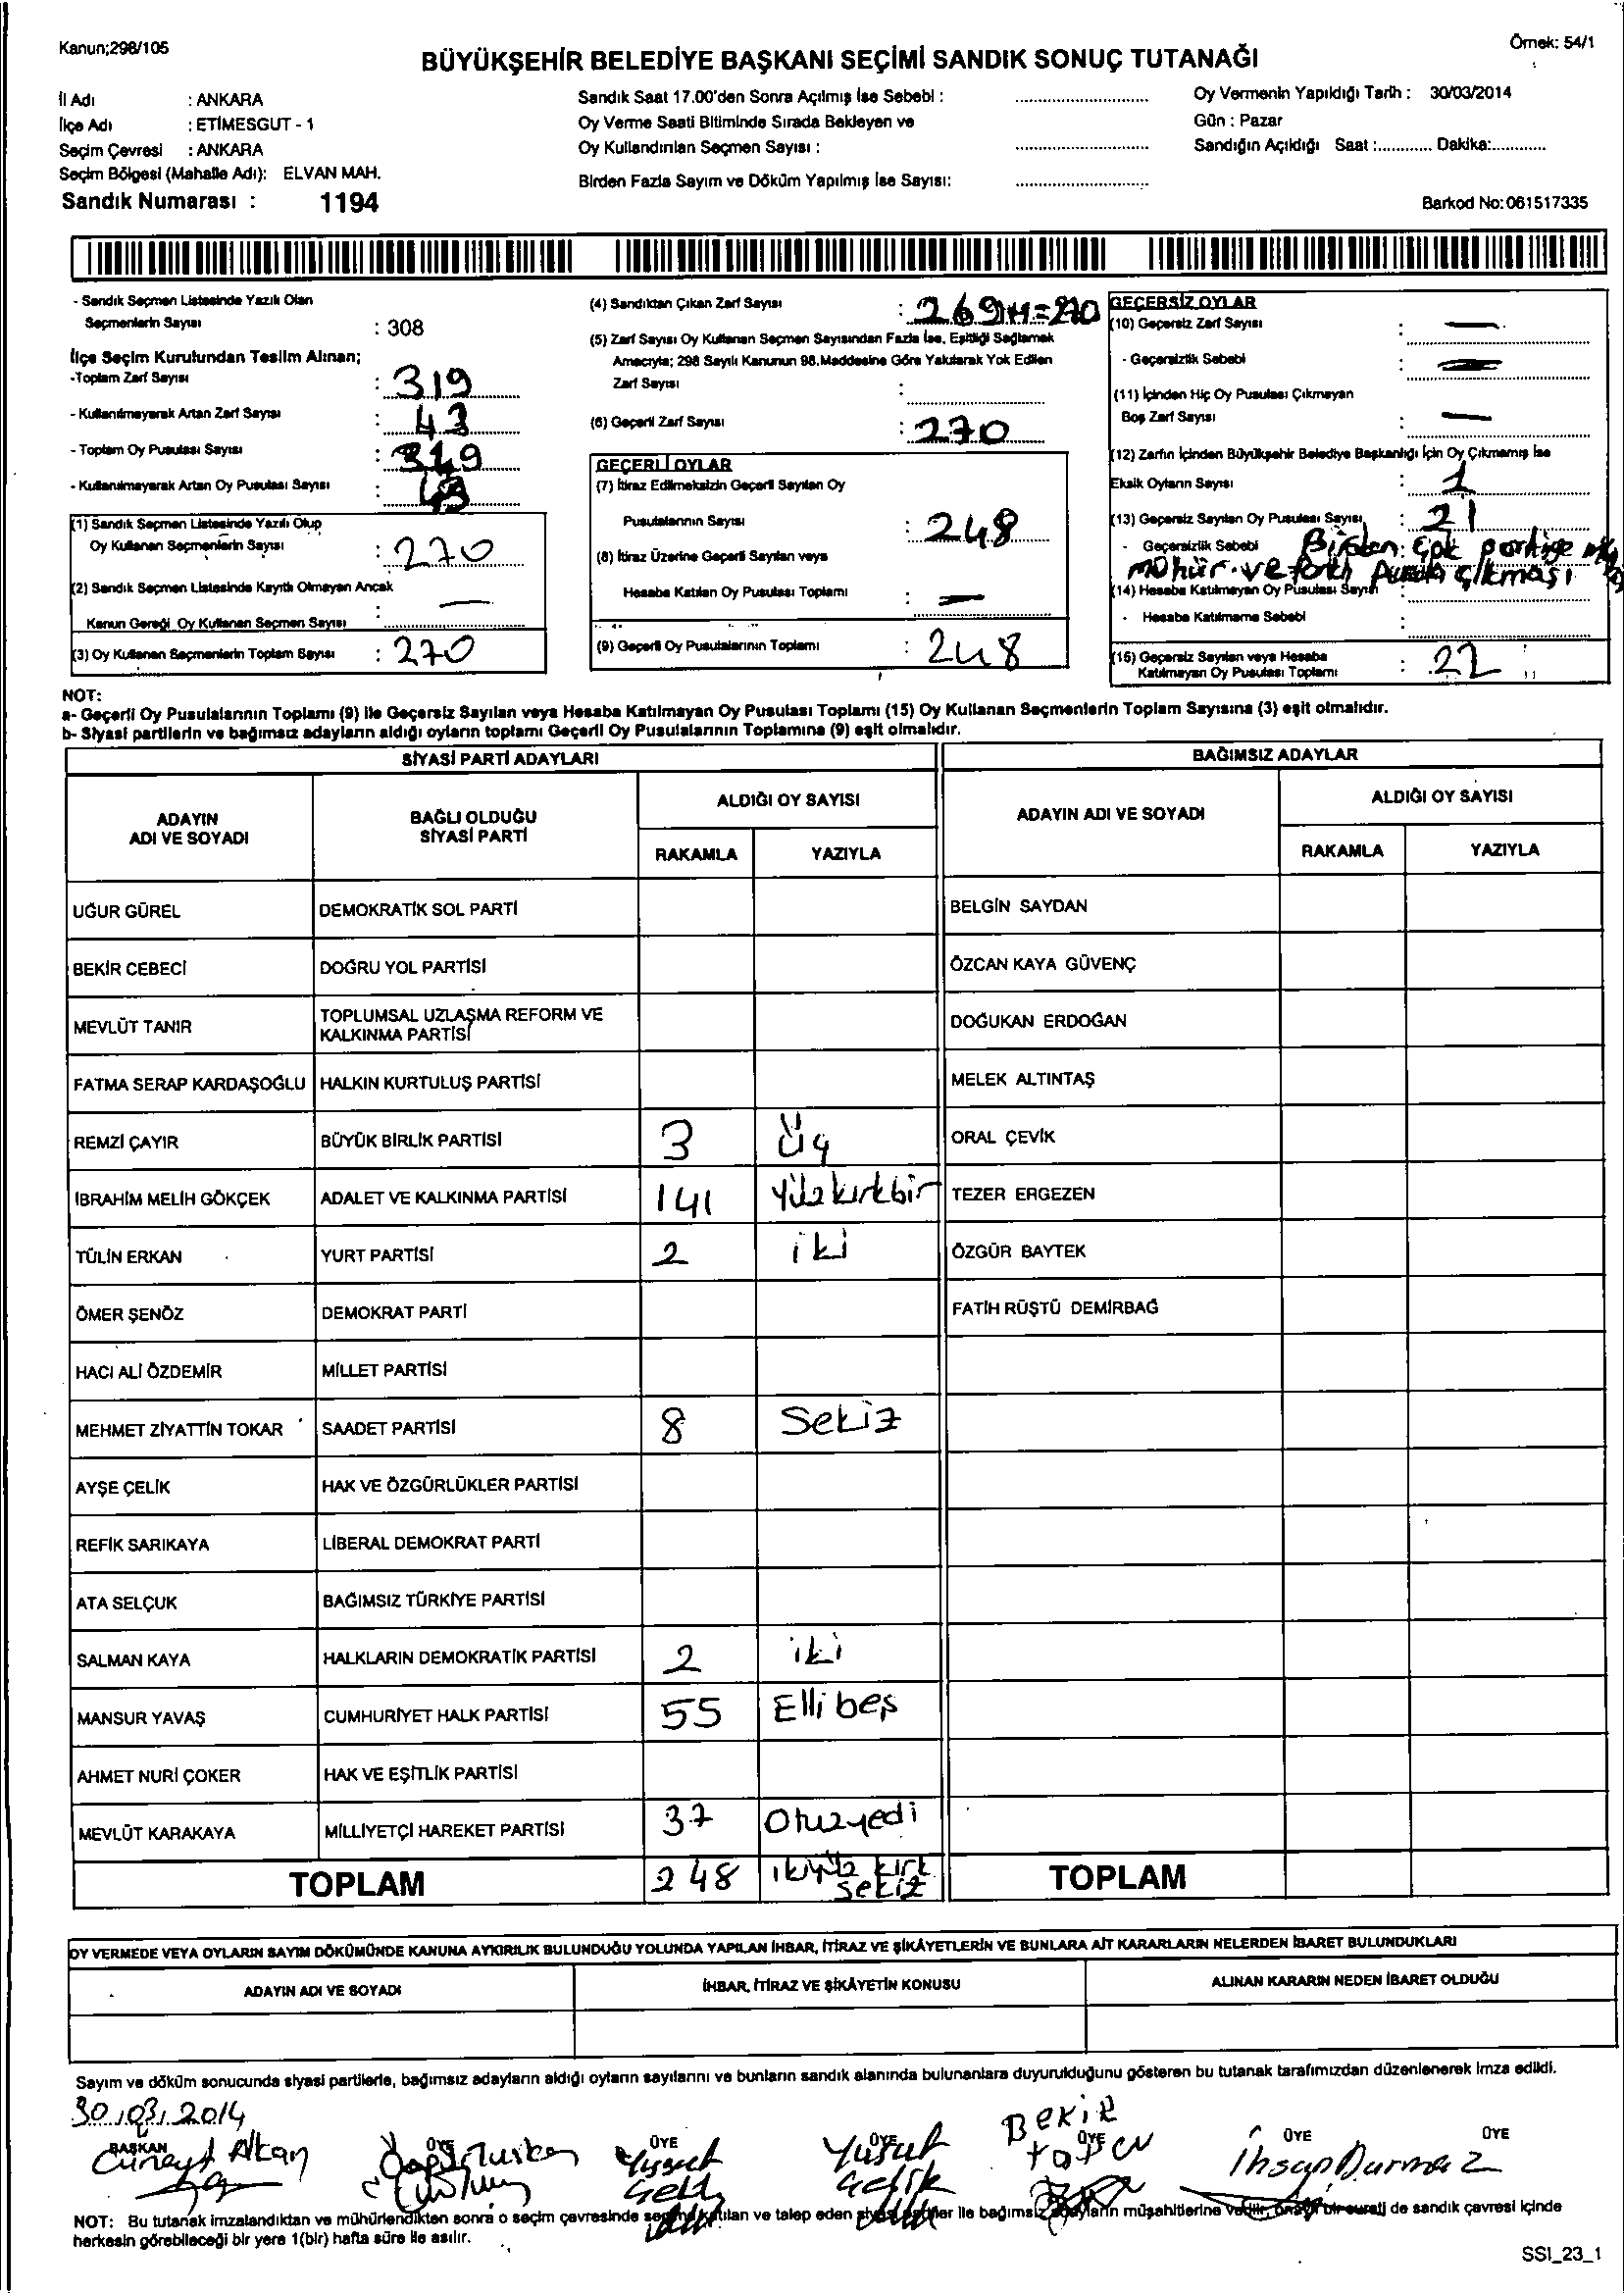 Kanun;298/105
Örnek: 54/1
BÜYÜKŞEHİR BELEDİYE BAŞKANI SEÇİMİ SANDIK SONUÇ TUTANAĞI
İl Adı : ANKARA
İlçe Adı : ETİMESGUT - 1
Seçim Çevresi : ANKARA
Seçim Bölgesi (Mahalle Adı): ELVAN MAH.
Sandık Numarası : 1194
Sandık Saat 17.00'den Sonra Açılmış İse Sebebi :
Oy Verme Saati Bitiminde Sırada Bekleyen ve
Oy Kullandırılan Seçmen Sayısı :
Birden Fazla Sayım ve Döküm Yapılmış İse Sayısı:
Oy Vermenin Yapıldığı Tarih : 30/03/2014
Gün : Pazar
Sandığın Açıldığı Saat :............ Dakika:............
Barkod No:061517335
- Sandık Seçmen Listesinde Yazılı Olan
Seçmenlerin Sayısı : 308
İlçe Seçim Kurulundan Teslim Alınan;
-Toplam Zarf Sayısı : 319
- Kullanılmayarak Artan Zarf Sayısı : 43
- Toplam Oy Pusulası Sayısı : 319
- Kullanılmayarak Artan Oy Pusulası Sayısı :
(1) Sandık Seçmen Listesinde Yazılı Olup
Oy Kullanan Seçmenlerin Sayısı : 270
(2) Sandık Seçmen Listesinde Kayıtlı Olmayan Ancak
Kanun Gereği Oy Kullanan Seçmen Sayısı : —
(3) Oy Kullanan Seçmenlerin Toplam Sayısı : 270
(4) Sandıktan Çıkan Zarf Sayısı : 269+1=270
(5) Zarf Sayısı Oy Kullanan Seçmen Sayısından Fazla İse, Eşitliği Sağlamak
Amacıyla; 298 Sayılı Kanunun 98.Maddesine Göre Yakılarak Yok Edilen
Zarf Sayısı :
(6) Geçerli Zarf Sayısı : 270
GEÇERLİ OYLAR
(7) İtiraz Edilmeksizin Geçerli Sayılan Oy
Pusulalarının Sayısı : 248
(8) İtiraz Üzerine Geçerli Sayılan veya
Hesaba Katılan Oy Pusulası Toplamı : —
(9) Geçerli Oy Pusulalarının Toplamı : 248
GEÇERSİZ OYLAR
(10) Geçersiz Zarf Sayısı : —
- Geçersizlik Sebebi : —
(11) İçinden Hiç Oy Pusulası Çıkmayan
Boş Zarf Sayısı : —
(12) Zarfın İçinden Büyükşehir Belediye Başkanlığı İçin Oy Çıkmamış İse
Eksik Oyların Sayısı : 1
(13) Geçersiz Sayılan Oy Pusulası Sayısı : 21
- Geçersizlik Sebebi Birden çok partiye
mühür ve farklı pusula çıkması
(14) Hesaba Katılmayan Oy Pusulası Sayısı
- Hesaba Katılmama Sebebi :
(15) Geçersiz Sayılan veya Hesaba
Katılmayan Oy Pusulası Toplamı : 22
NOT:
a- Geçerli Oy Pusulalarının Toplamı (9) ile Geçersiz Sayılan veya Hesaba Katılmayan Oy Pusulası Toplamı (15) Oy Kullanan Seçmenlerin Toplam Sayısına (3) eşit olmalıdır.
b- Siyasi partilerin ve bağımsız adayların aldığı oyların toplamı Geçerli Oy Pusulalarının Toplamına (9) eşit olmalıdır.
SİYASİ PARTİ ADAYLARI
BAĞIMSIZ ADAYLAR
ADAYIN ADI VE SOYADI
BAĞLI OLDUĞU SİYASİ PARTİ
ALDIĞI OY SAYISI
RAKAMLA YAZIYLA
ADAYIN ADI VE SOYADI
ALDIĞI OY SAYISI
RAKAMLA YAZIYLA
UĞUR GÜREL DEMOKRATİK SOL PARTİ BELGİN SAYDAN
BEKİR CEBECİ DOĞRU YOL PARTİSİ ÖZCAN KAYA GÜVENÇ
MEVLÜT TANIR TOPLUMSAL UZLAŞMA REFORM VE KALKINMA PARTİSİ DOĞUKAN ERDOĞAN
FATMA SERAP KARDAŞOĞLU HALKIN KURTULUŞ PARTİSİ MELEK ALTINTAŞ
REMZİ ÇAYIR BÜYÜK BİRLİK PARTİSİ 3 Üç ORAL ÇEVİK
İBRAHİM MELİH GÖKÇEK ADALET VE KALKINMA PARTİSİ 141 Yüzkırkbir TEZER ERGEZEN
TÜLİN ERKAN YURT PARTİSİ 2 iki ÖZGÜR BAYTEK
ÖMER ŞENÖZ DEMOKRAT PARTİ FATİH RÜŞTÜ DEMİRBAĞ
HACI ALİ ÖZDEMİR MİLLET PARTİSİ
MEHMET ZİYATTİN TOKAR SAADET PARTİSİ 8 Sekiz
AYŞE ÇELİK HAK VE ÖZGÜRLÜKLER PARTİSİ
REFİK SARIKAYA LİBERAL DEMOKRAT PARTİ
ATA SELÇUK BAĞIMSIZ TÜRKİYE PARTİSİ
SALMAN KAYA HALKLARIN DEMOKRATİK PARTİSİ 2 iki
MANSUR YAVAŞ CUMHURİYET HALK PARTİSİ 55 Elli beş
AHMET NURİ ÇOKER HAK VE EŞİTLİK PARTİSİ
MEVLÜT KARAKAYA MİLLİYETÇİ HAREKET PARTİSİ 37 Otuzyedi
TOPLAM 248 ikiyüz kırk sekiz TOPLAM
OY VERMEDE VEYA OYLARIN SAYIM DÖKÜMÜNDE KANUNA AYKIRILIK BULUNDUĞU YOLUNDA YAPILAN İHBAR, İTİRAZ VE ŞİKÂYETLERİN VE BUNLARA AİT KARARLARIN NELERDEN İBARET BULUNDUKLARI
ADAYIN ADI VE SOYADI İHBAR, İTİRAZ VE ŞİKÂYETİN KONUSU ALINAN KARARIN NEDEN İBARET OLDUĞU
Sayım ve döküm sonucunda siyasi partilerle, bağımsız adayların aldığı oyların sayılarını ve bunların sandık alanında bulunanlara duyurulduğunu gösteren bu tutanak tarafımızdan düzenlenerek imza edildi.
30/03/2014
BAŞKAN ÜYE ÜYE ÜYE ÜYE ÜYE ÜYE
Cüneyt Alkan Yusuf Çelik Bekir Topçu İhsan Durmaz
NOT: Bu tutanak imzalandıktan ve mühürlendikten sonra o seçim çevresinde seçime katılan ve talep eden siyasi partiler ile bağımsız adayların müşahitlerine verilir, onaylı bir sureti de sandık çevresi içinde
herkesin görebileceği bir yere 1(bir) hafta süre ile asılır.
SSI_23_1